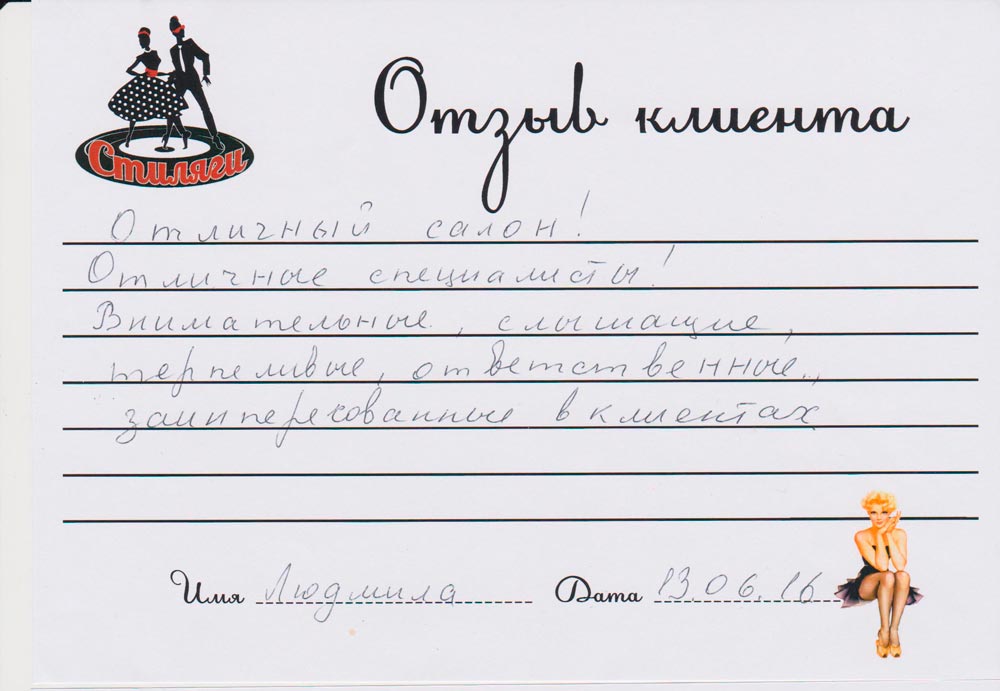 Стиляги
Отзыв клиента
Отличный салон!
Отличные специалисты!
Внимательные, слышащие,
терпеливые, ответственные.,
заинтересованные в клиентах.
Имя Людмила Дата 13.06.16